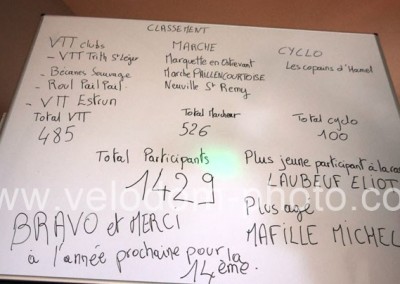 CLASSEMENT
VTT clubs
- VTT Trith St Léger
- Bécanes Sauvage
- Roul Pail Pail
- VTT Estrun
Total VTT
485
MARCHE
Marquette en Ostrevant
Marche PAILLENCOURTOISE
Neuville St Remy
Total Marcheur
526
CYCLO
Les copains d'Hamel
Total cyclo
100
Total Participants
1429
Plus jeune participant à la
LAUBEUF ELIOT
Plus agé
MAFILLE MICHEL
BRAVO et MERCI
à l'année prochaine pour la
14ème.